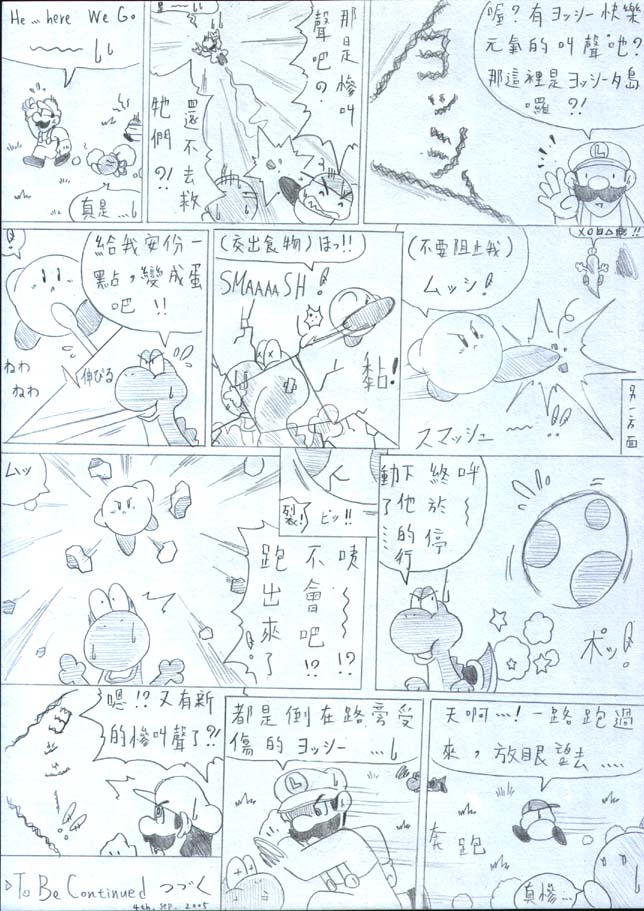 喔?有ヨッシー快樂
元氣的叫聲吔?
那這裡是ヨッシータ島
囉?!
那是慘叫
聲吧。
還不去救
牠們?!
He... here We Go
~~~~
真是...
另一方面
(不要阻止我)
ムッシ!
スマッシュ
~~!!
(交出食物)はっ!!
SMAAAASH!
黏!
給我安份一
點,變成蛋
吧!!
伸びる
ねわ
ねわ
呼~~
終於停
下他的行
動了......
ポッ!
裂!
ピッ!!
咦~~!?
不會吧!?
跑出來了
ムッ
天啊...!一路跑過
來,放眼望去....
奔跑
真慘...
都是倒在路旁受
傷的ヨッシー...
嗯!?又有新
的慘叫聲了?!
▷To Be Continued つづく
4th. sep. 2005